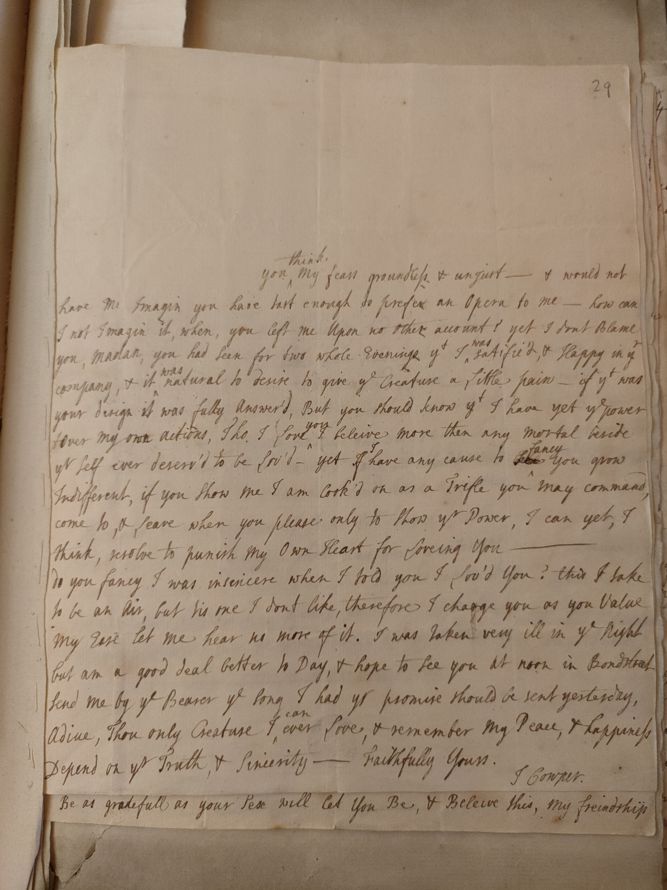 29
think
you ^ My fears groundless & unjust — & would not
have Me Imagin you have tast enough to prefer an Opera to me — how can
I not Imagin it, when, you left me Upon no other account? yet I dont Blame
you, Madan, you had been for two whole Evenings yt I ^was satisfi'd, & Happy in yr
company, & it ^was natural to desire to give ye Creature a little pain — if yt was
your disign it was fully Answer'd, But you should know yt I have yet ye power
over my own actions, Tho, I Love ^you I beleive more then any mortal beside
yr self ever deserv'd to be Lov'd — yet If ^I have any cause to fancy you grow
Indifferent, if you show me I am Look'd on as a Trifle you may command,
come to, & leave when you please only to show yr Power, I can yet, I
think, resolve to punish My Own Heart for Loveing You —
do you fancy I was insencere when I told you I Lov'd You? this I take
to be an Air, but tis one I dont like, therefore I charge you as you Value
My Ease let me hear no more of it. I was taken very ill in ye Night
but am a good deal better to Day, & hope to see you at noon in Bondstreet
Send me by ye Bearer ye Song I had yr promise should be sent yesterday,
Adiue, Thou only Creature I ^can ever Love, & remember My Peace, & happiness
Depend on yr Truth, & Sincerity — Faithfully Yours.
J Cowper.
Be as gratefull as your Sex will let You Be, & Beleive this, My freindship